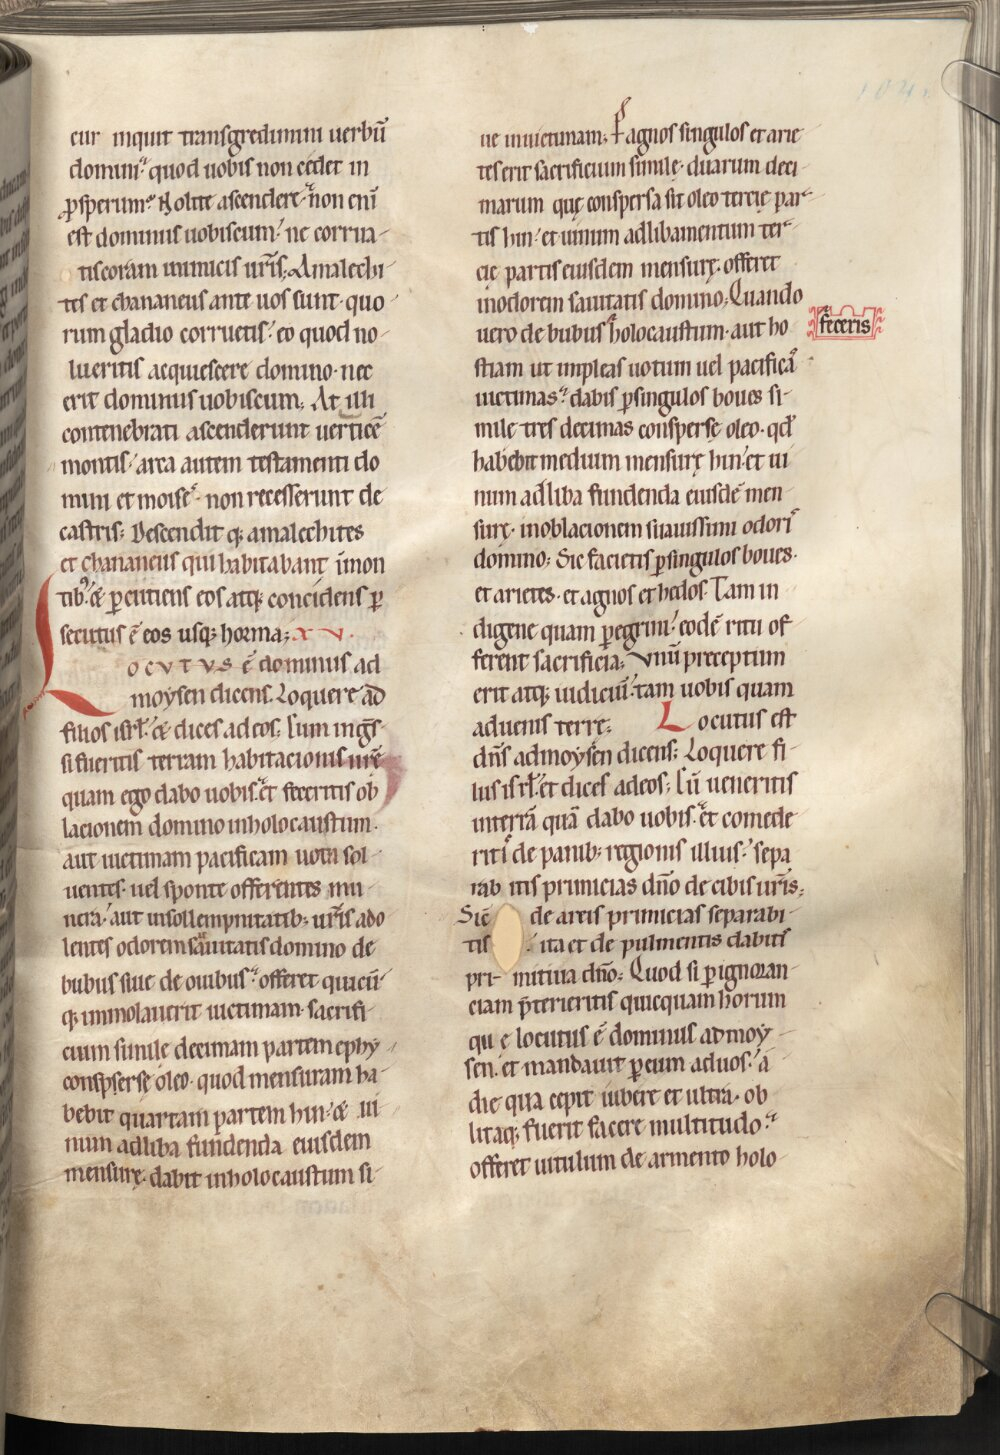 cur inquit transgredimini uerbū
domini? quod uobis non cedet in
ꝓsperum? Nolite ascendere. non enī
est dominus uobiscum. ne corrua
tis coram inimicis ur̄is. Amalechi
tes et chananeus ante uos sunt. quo
rum gladio corruetis. eo quod no
lueritis acquiescere domino. nec
erit dominus uobiscum. At illi
contenebrati ascenderunt uerticē
montis. arca autem testamenti do
mini et moises. non recesserunt de
castris. Descenditq; amalechites
et chananeus qui habitabant ī mon
tib;. & ꝑcutiens eos atq; concidens ꝑ
secutus ē eos usq; horma; XV.
LOCVTVS ē dominus ad
moysen dicens. Loquere ad
filios isrl̄. & dices ad eos. Cum ingr̄s
si fueritis terram habitacionis urē
quam ego dabo uobis. et feceritis ob
lacionem domino in holocaustum.
aut uictimam pacificam uota sol
uentes. uel sponte offerentes mu
nera. aut in sollempnitatib; ur̄is ado
lentes odorem suauitatis domino de
bubus siue de ouibus. offeret quicū
q; immolauerit uictimam. sacrifi
cium simile decimam partem ephy
conspserse oleo. quod mensuram ha
bebit quartam partem hin. & ui
num ad liba fundenda eiusdem
mensurę. dabit in holocaustum si
ue in uictimam. Per agnos singulos et arie
tes erit sacrificium simile. duarum deci
marum quę conspersa sit oleo tercię par
tis hin. et uinum ad libamentum ter
cię partis eiusdem mensurę. offeret
in odorem sauitatis domino. Quando
uero de bubus holocaustum. aut ho
feceris
stiam ut impleas uotum uel pacificā
uictimas. dabis ꝑ singulos boues si
mile tres decimas consperse oleo. qd̄
habebit medium mensurę hin. et ui
num ad liba fundenda eiusdē men
surę. in oblacionem suauissimi odoris
domino. Sic facietis ꝑ singulos boues.
et arietes. et agnos et hedos. Tam in
digene quam ꝑegrini. eodē ritu of
ferent sacrificia. Vnū preceptum
erit atq; iudiciū. tam uobis quam
aduenis terre; Locutus est
dn̄s ad moysen dicens. Loquere fi
liis isrl̄. et dices ad eos. Cū ueneritis
in terrā quā dabo uobis. et comede
ritis de panib; regionis illius. sepa
rabitis primicias dn̄o de cibis ur̄is.
Sic de areis primicias separabi
tis. ita et de pulmentis dabitis
primitiua dn̄o. Quod si ꝑ ignoran
ciam p̄terieritis quicquam horum
quę locutus ē dominus ad moy
sen. et mandauit ꝑ eum ad uos. a
die qua cepit iubere et ultra. ob
litaq; fuerit facere multitudo.
offeret uitulum de armento holo